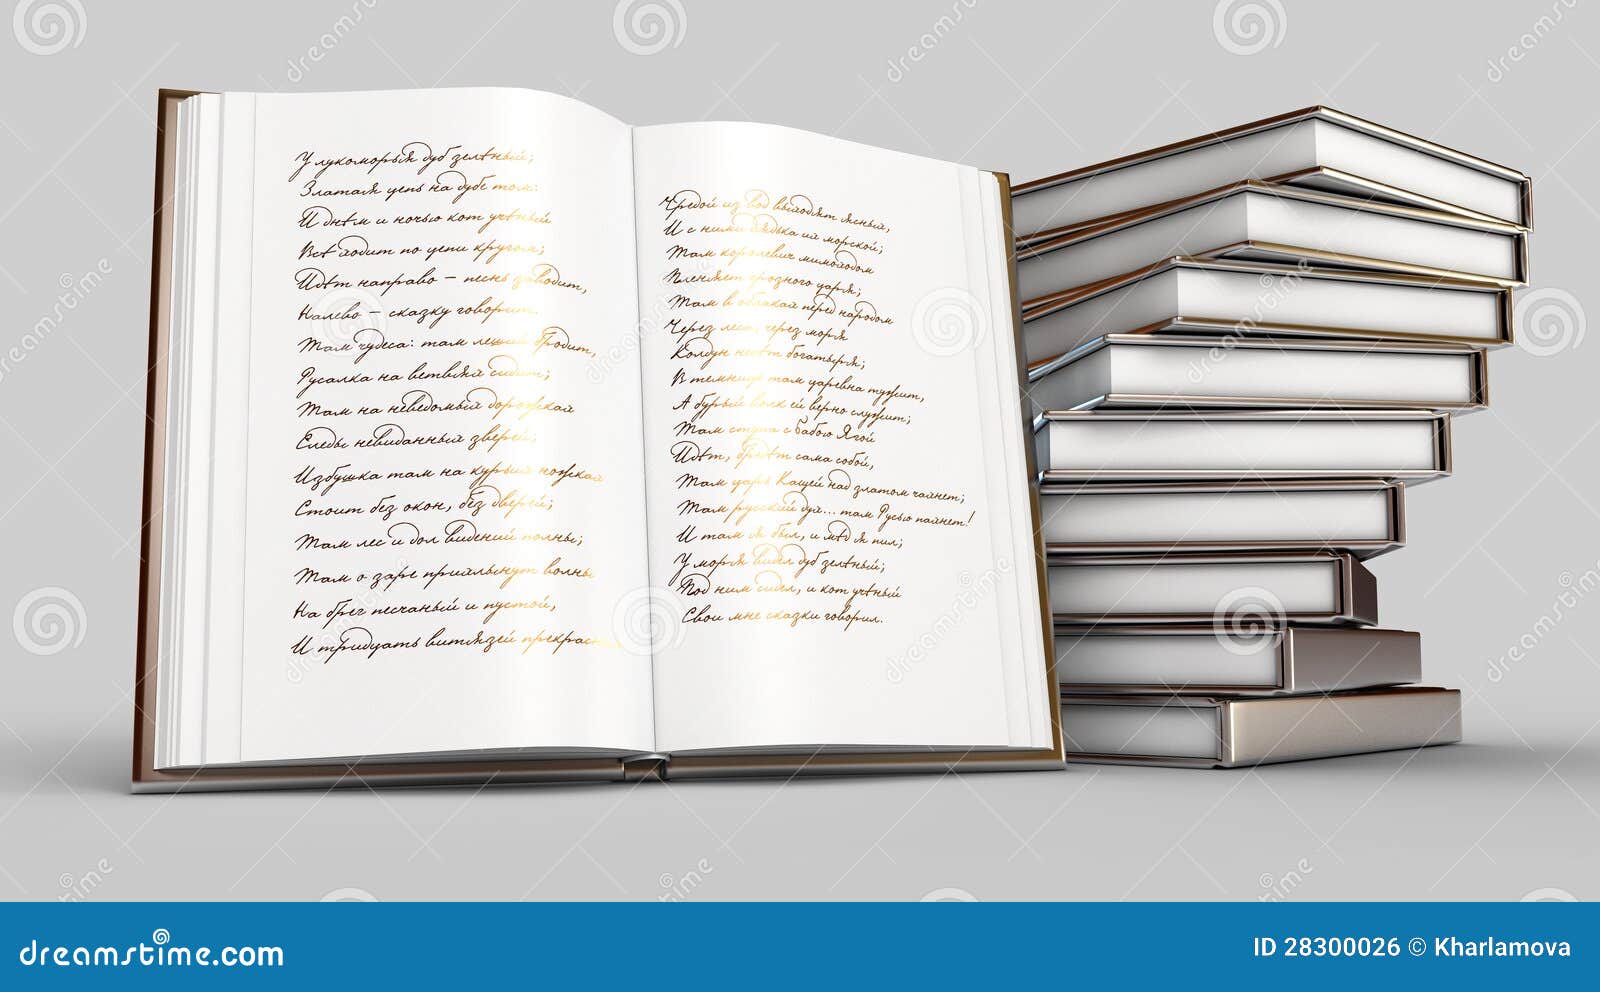 У лукоморья дуб зелёный;
Златая цепь на дубе том:
И днём и ночью кот учёный
Всё ходит по цепи кругом;
Идёт направо – песнь заводит,
Налево – сказку говорит.
Там чудеса: там леший бродит,
Русалка на ветвях сидит;
Там на неведомых дорожках
Следы невиданных зверей;
Избушка там на курьих ножках
Стоит без окон, без дверей;
Там лес и дол видений полны;
Там о заре прихлынут волны
На брег песчаный и пустой,
И тридцать витязей прекрасных
Чредой из вод выходят ясных,
И с ними дядька их морской;
Там королевич мимоходом
Пленяет грозного царя;
Там в облаках перед народом
Через леса, через моря
Колдун несёт богатыря;
В темнице там царевна тужит,
А бурый волк ей верно служит;
Там ступа с Бабою Ягой
Идёт, бредёт сама собой,
Там царь Кащей над златом чахнет;
Там русский дух... там Русью пахнет!
И там я был, и мёд я пил;
У моря видел дуб зелёный;
Под ним сидел, и кот учёный
Свои мне сказки говорил.
dreamstime.com
ID 28300026 © Kharlamova